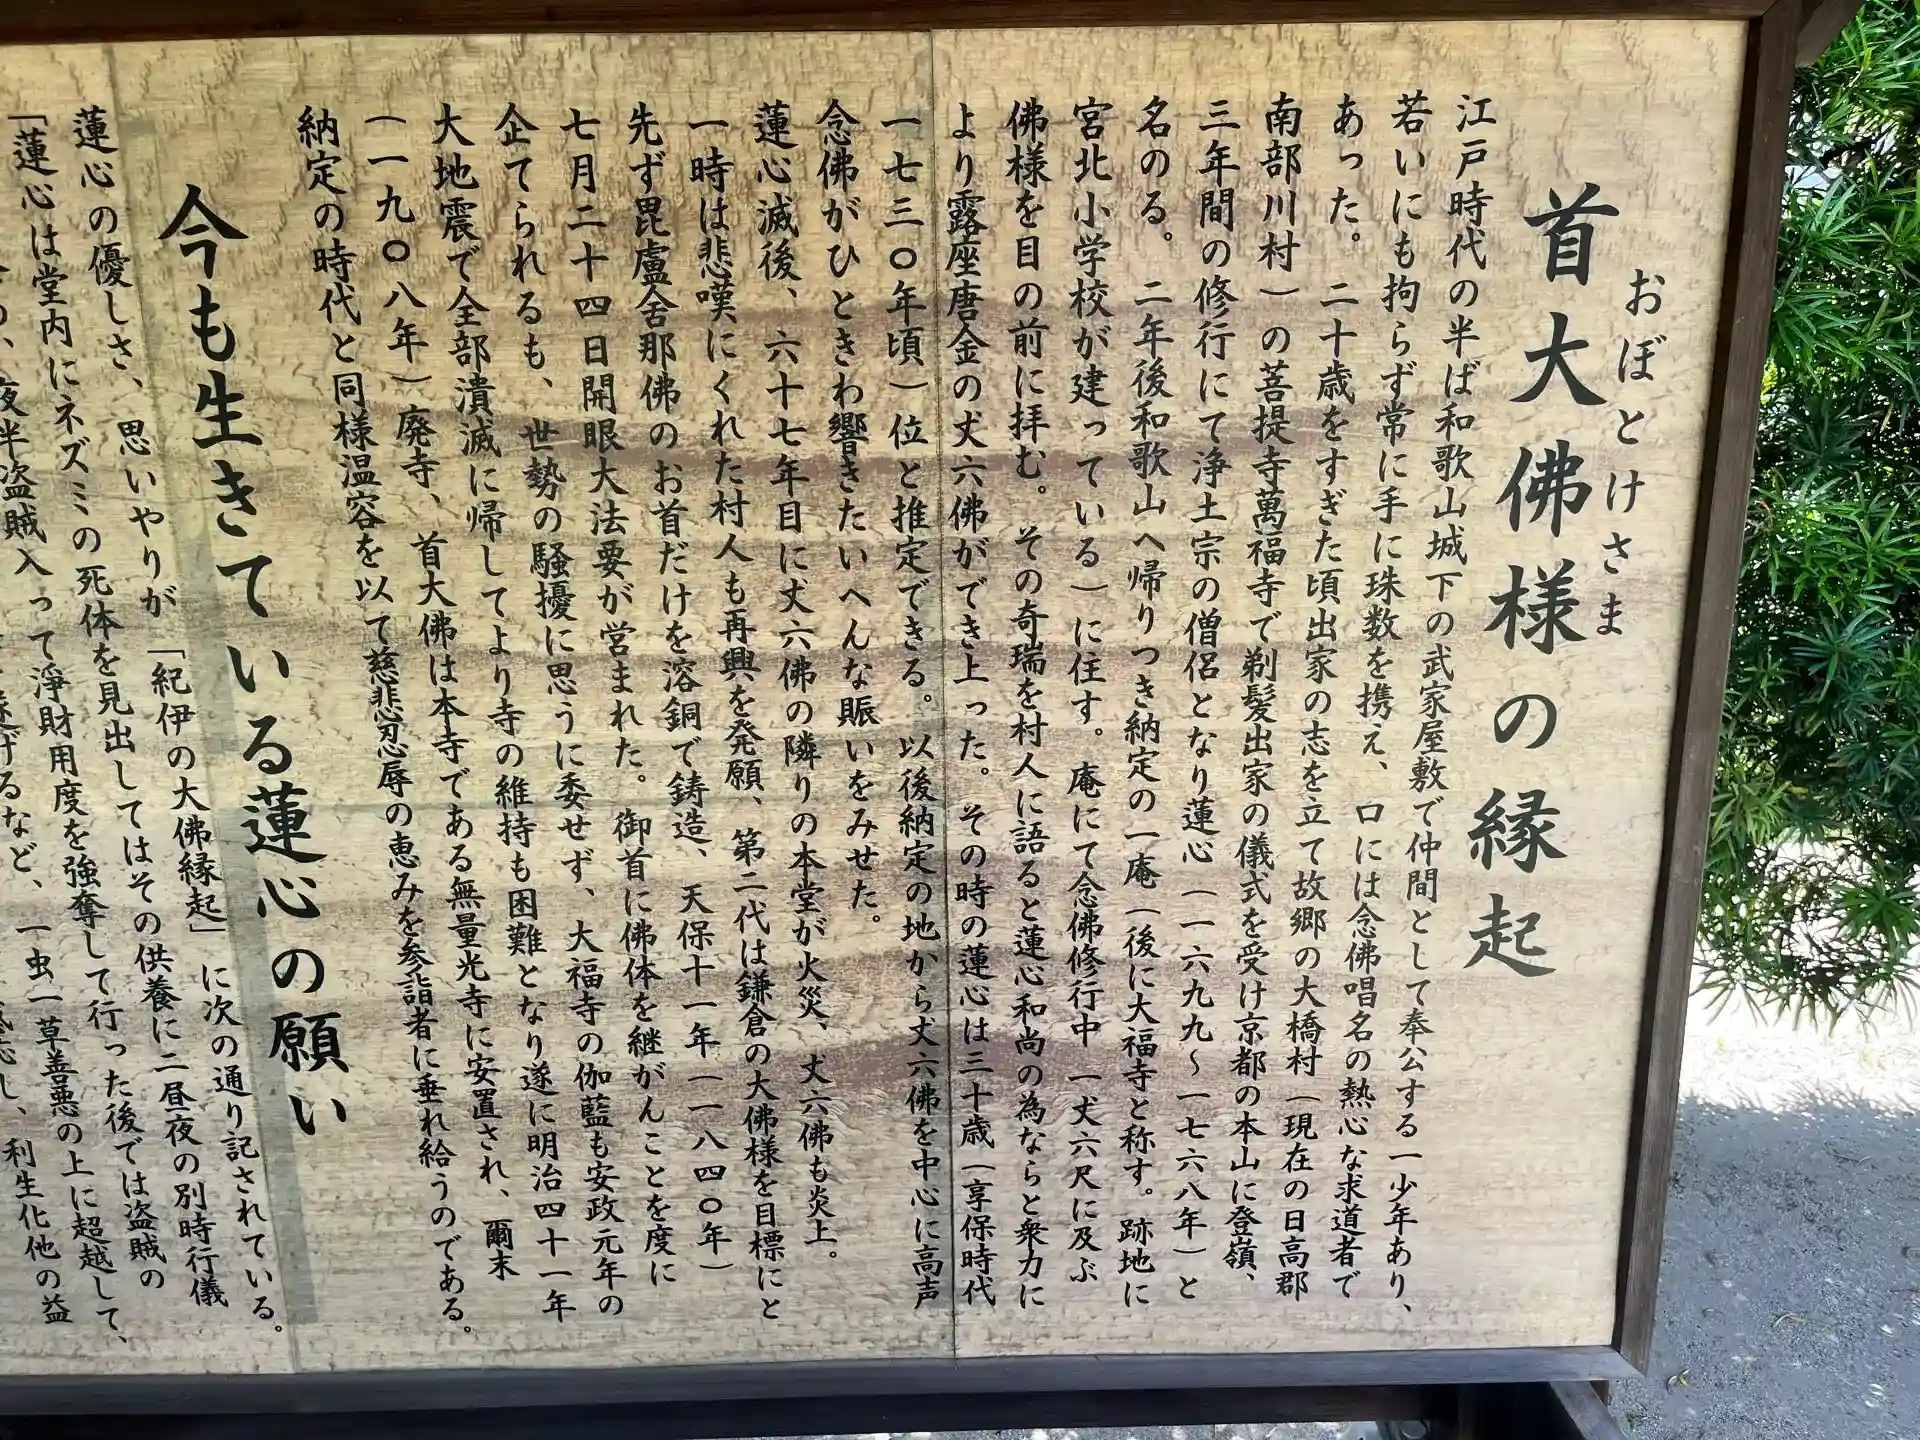 おぼとけさま
首大佛様の縁起
江戸時代の半ば和歌山城下の武家屋敷で仲間として奉公する一少年あり、
若いにも拘らず常に手に珠数を携え、口には念佛唱名の熱心な求道者で
あった。二十歳をすぎた頃出家の志を立て故郷の大橋村（現在の日高郡
南部川村）の菩提寺萬福寺で剃髪出家の儀式を受け京都の本山に登嶺、
三年間の修行にて浄土宗の僧侶となり蓮心（一六九九〜一七六八年）と
名のる。二年後和歌山へ帰りつき納定の一庵（後に大福寺と称す。跡地に
宮北小学校が建っている）に住す。庵にて念佛修行中 一丈六尺に及ぶ
佛様を目の前に拝む。その奇瑞を村人に語ると蓮心和尚の為ならと衆力に
より露座唐金の丈六佛ができ上った。その時の蓮心は三十歳（享保時代
一七三〇年頃）位と推定できる。以後納定の地から丈六佛を中心に高声
念佛がひときわ響きたいへんな賑いをみせた。
蓮心滅後、六十七年目に丈六佛の隣りの本堂が火災、丈六佛も炎上。
一時は悲嘆にくれた村人も再興を発願、第二代は鎌倉の大佛様を目標にと
先ず毘盧舎那佛のお首だけを溶銅で鋳造、天保十一年（一八四〇年）
七月二十四日開眼大法要が営まれた。御首に佛体を継がんことを度に
企てられるも、世勢の騒擾に思うに委せず、大福寺の伽藍も安政元年の
大地震で全部潰滅に帰してより寺の維持も困難となり遂に明治四十一年
（一九〇八年）廃寺、首大佛は本寺である無量光寺に安置され、爾末
納定の時代と同様温容を以て慈悲忍辱の恵みを参詣者に垂れ給うのである。
今も生きている蓮心の願い
蓮心の優しさ、思いやりが「紀伊の大佛縁起」に次の通り記されている。
「蓮心は堂内にネズミの死体を見出してはその供養に二昼夜の別時行儀
夜半盗賊入って淨財用度を強奪して行った後では盗賊の
げるなど、一虫一草善悪の上に超越して、
し、利生化他の益